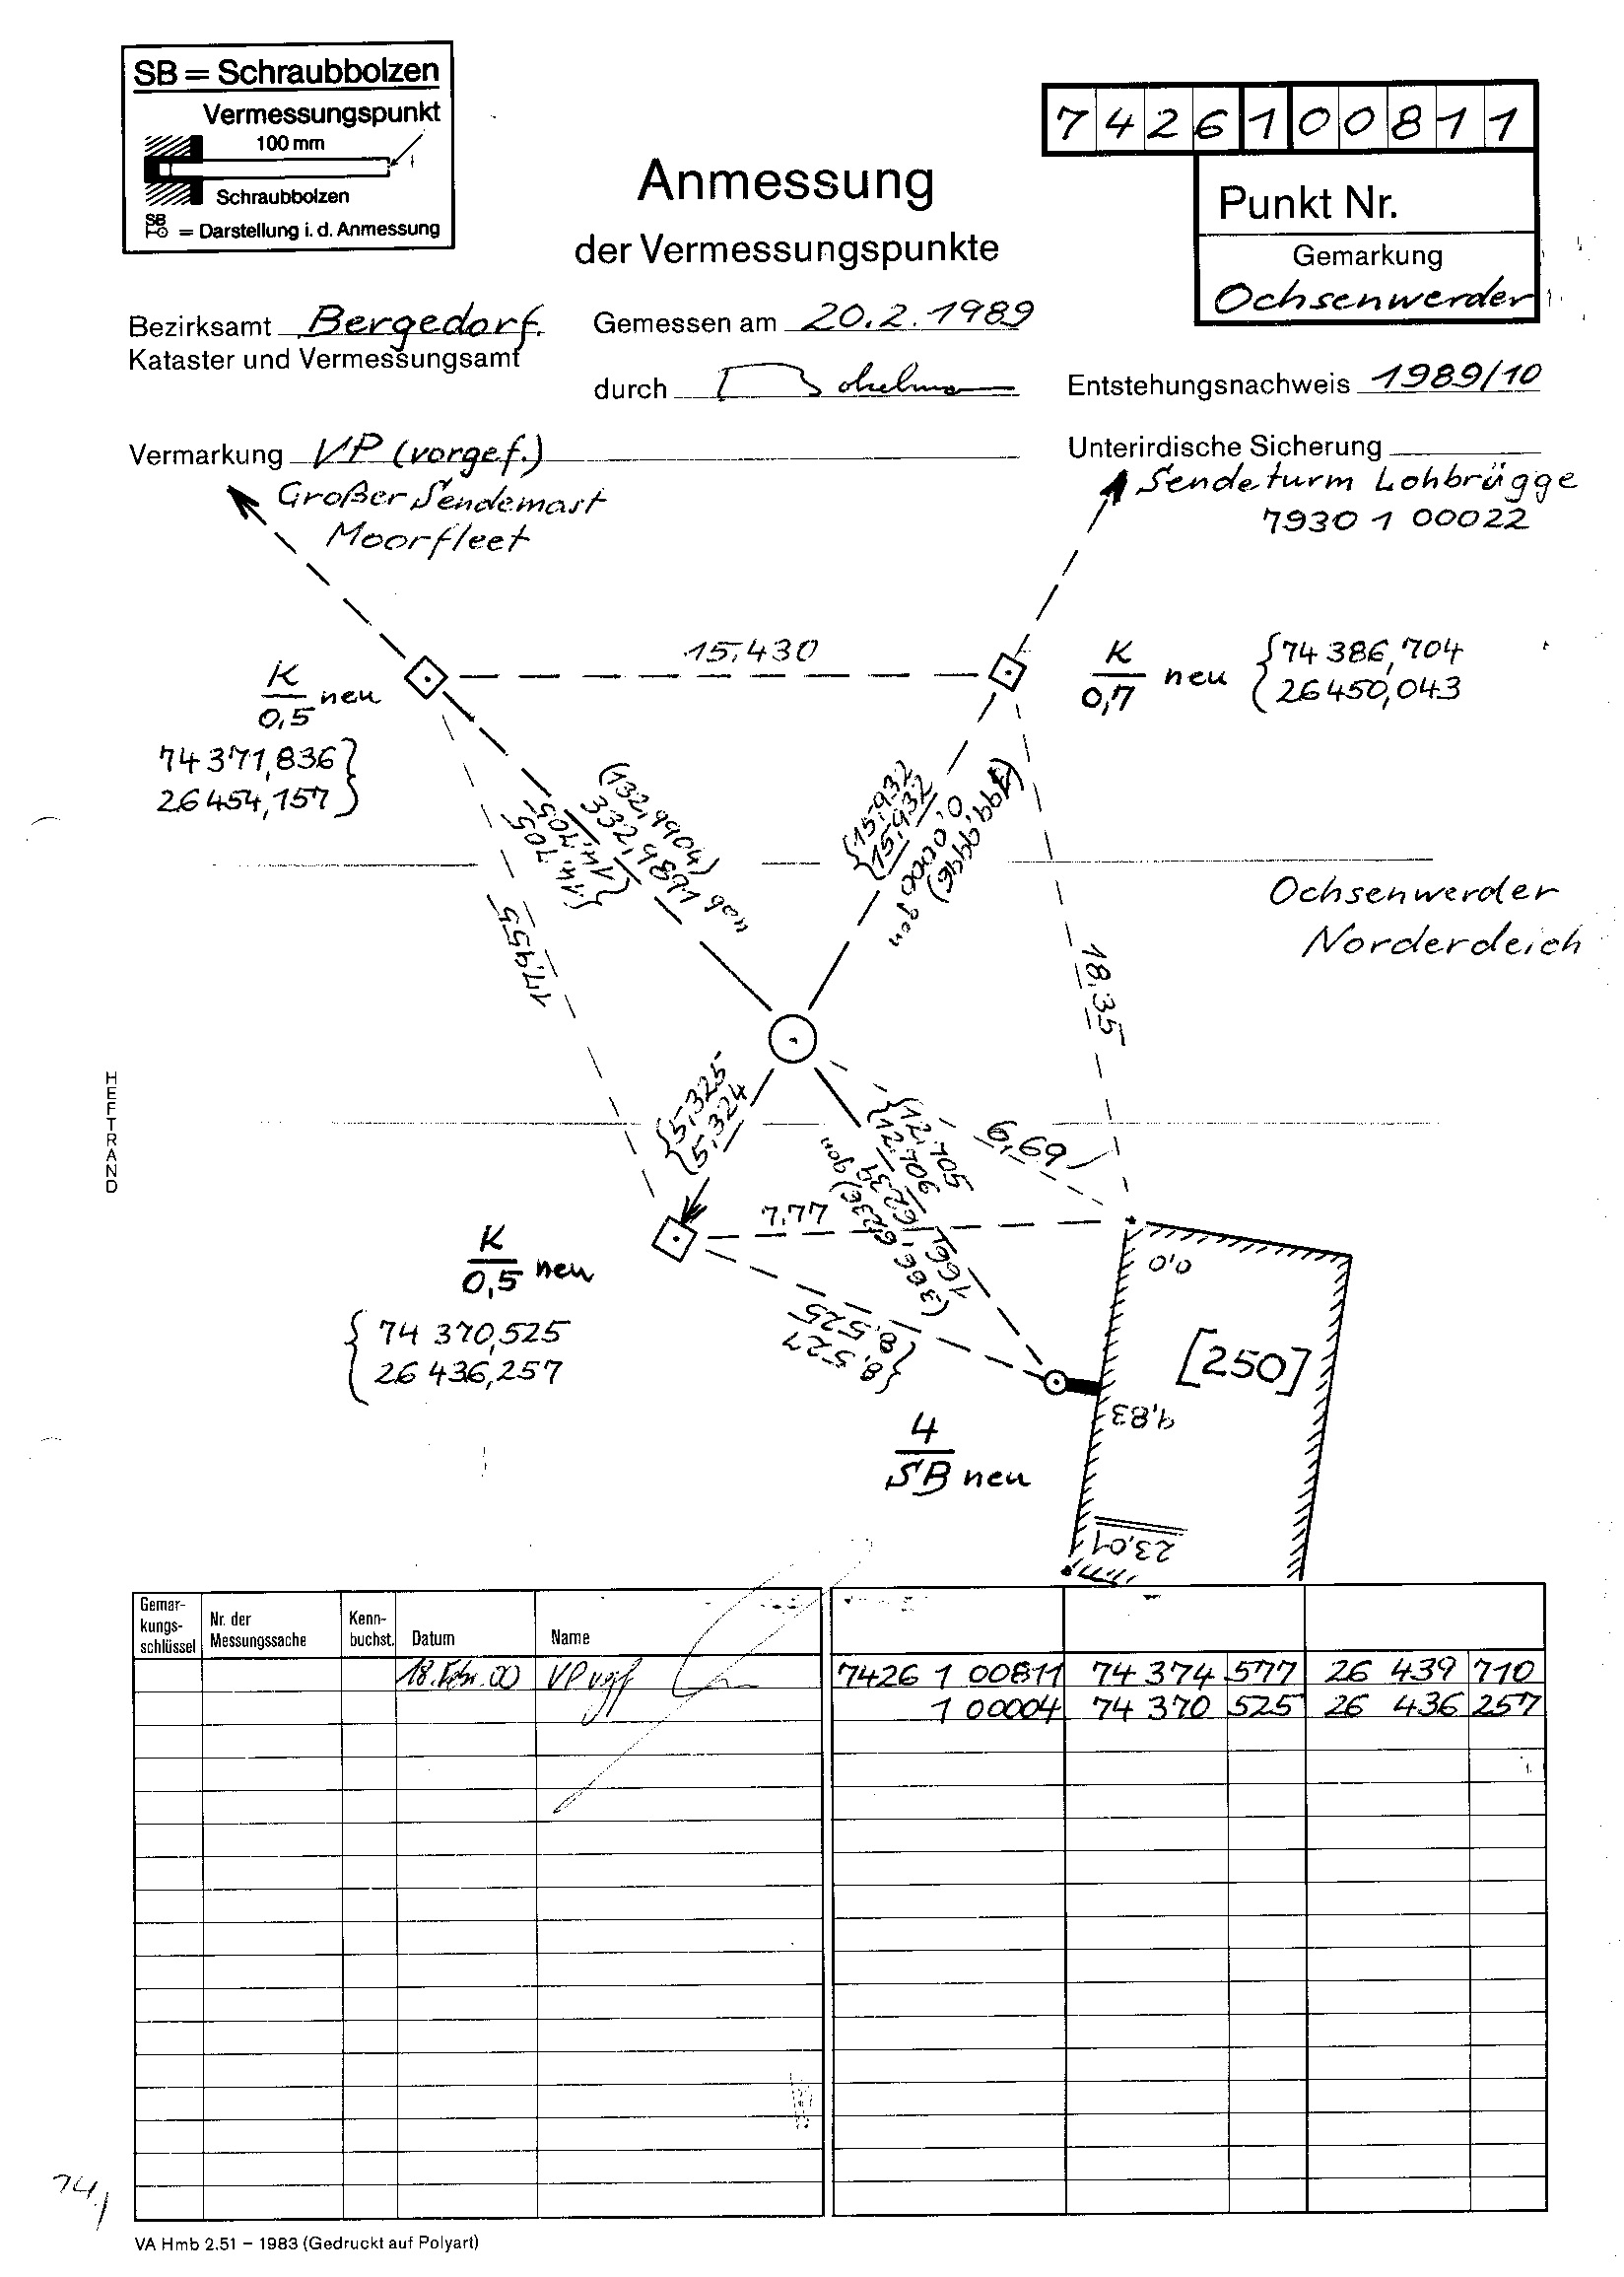 SB = Schraubbolzen
Vermessungspunkt
100 mm
Schraubbolzen
SB
= Darstellung i. d. Anmessung
7426100811
Punkt Nr.
Gemarkung
Ochsenwerder
Anmessung
der Vermessungspunkte
Bezirksamt Bergedorf.
Kataster und Vermessungsamt
Gemessen am 20.2.1989
durch
Entstehungsnachweis 1989/10
Vermarkung VP (vorgef.)
Unterirdische Sicherung
Großer Sendemast
Moorfleet
Sendeturm Lohbrügge
7930 1 00022
15,430
K
0,5 neu
74 371,836
26 454,157
K
0,7 neu
74 386,704
26450,043
(132,9904)
332,9891 gon
14,705
14,705
15,932
15,932
0,0000 gon
(199,9996)
17,955
18,35
Ochsenwerder
Norderdeich
HEFTRAND
5,325
5,324
12,705
12,706
6,69
7,77
K
0,5 neu
74 370,525
26 436,257
8,525
8,527
0,0
[250]
9,83
4
SB neu
23,01
Gemar-
kungs-
schlüssel
Nr. der
Messungssache
Kenn-
buchst.
Datum
Name
18. Febr. 00 VP vgf
7426 1 00811 74 374 577 26 439 710
1 00004 74 370 525 26 436 257
74,1
VA Hmb 2.51 – 1983 (Gedruckt auf Polyart)